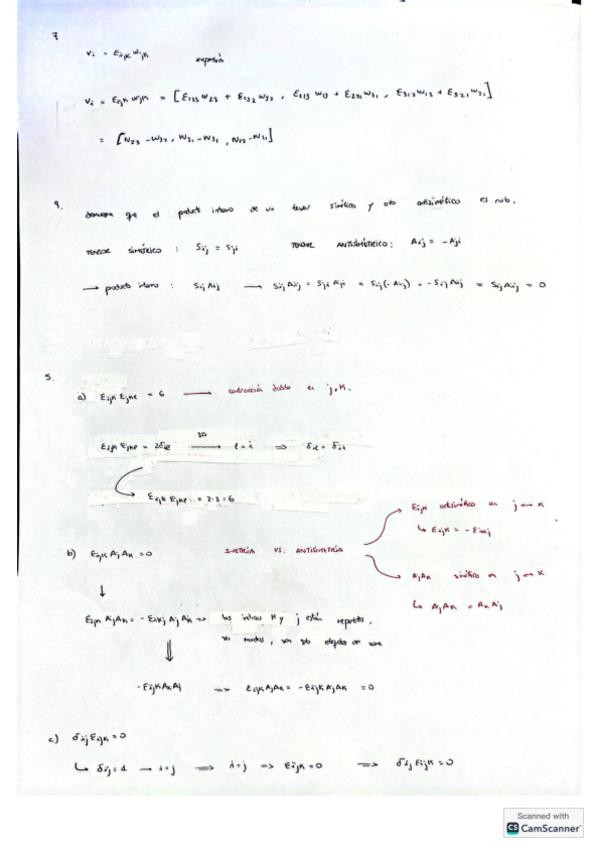 7
vi = εijk wjk
expresión
vi = εijk wjk = [ε123 w23 + ε132 w32 , ε213 w13 + ε231 w31 , ε312 w12 + ε321 w21]
= [w23 - w32 , w31 - w31 , w12 - w21]
9.
demuestra que el producto interno de un tensor simétrico y otro antisimétrico es nulo.
TENSOR SIMÉTRICO : Sij = Sji TENSOR ANTISIMÉTRICO : Aij = - Aji
→ producto interno : Sij Aij → Sij Aij = Sji Aji = Sij (-Aij) = - Sij Aij = Sij Aij = 0
5.
a) εijk εjkl = 6 → contracción doble en j, k.
εijk εjkl = 2δil 3D → l = i ⇒ δil = δii
εijk εjkl = 2·3 = 6
b) εijk Aj Ak = 0 SIMETRÍA VS. ANTISIMETRÍA
εijk antisimétrico en j ↔ k
↳ εijk = - εikj
Aj Ak simétrico en j ↔ k
↳ Aj Ak = Ak Aj
εijk Aj Ak = - εikj Aj Ak ⇒ los índices k y j están repetidos.
- εijk Ak Aj ⇒ εijk Aj Ak = - εijk Aj Ak = 0
c) δij εijk = 0
↳ δij = 1 → i = j ⇒ i = j ⇒ εijk = 0 ⇒ δij εijk = 0
Scanned with
CS CamScanner